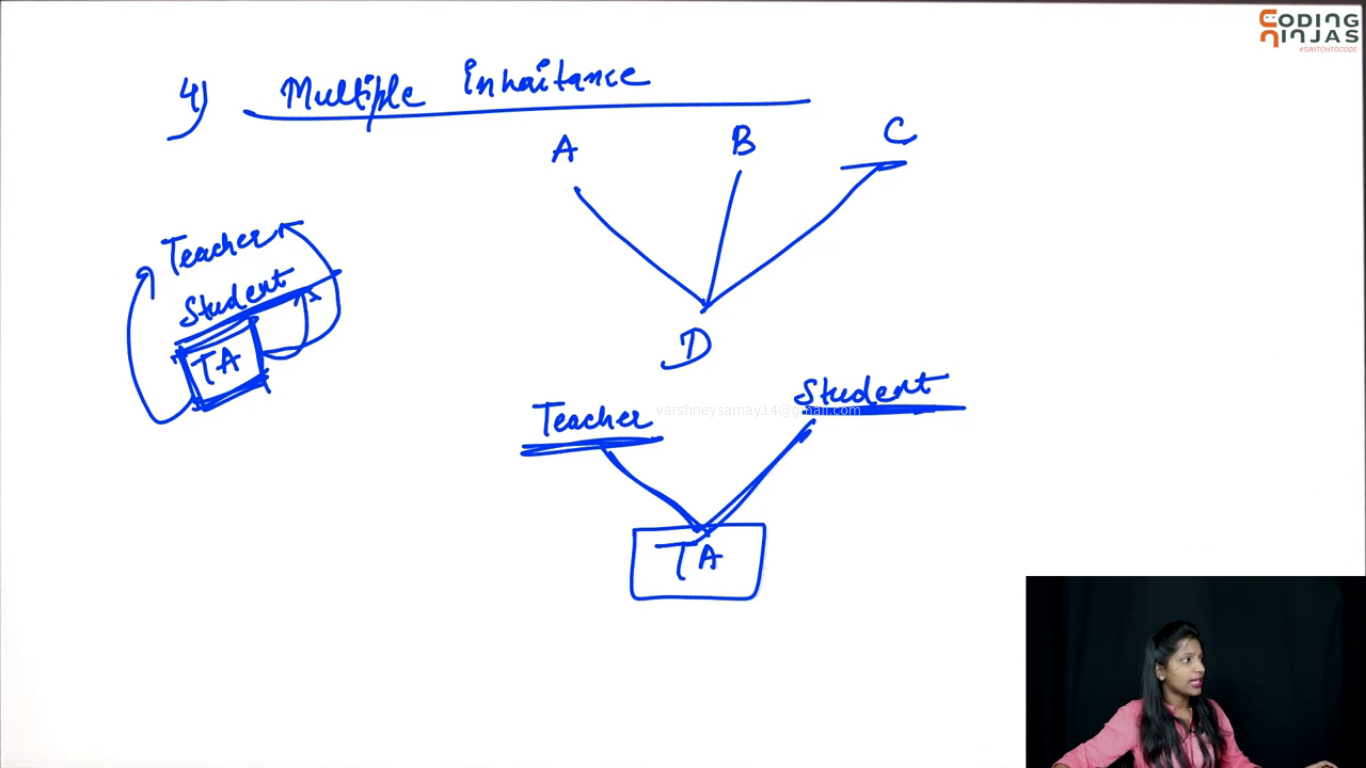 CODING
NINJAS
#SWITCHTOCODE
4) Multiple Inhaitance
A B C
Teacher
Student
TA
D
Teacher Student
varshneysamay14@gmail.com
TA